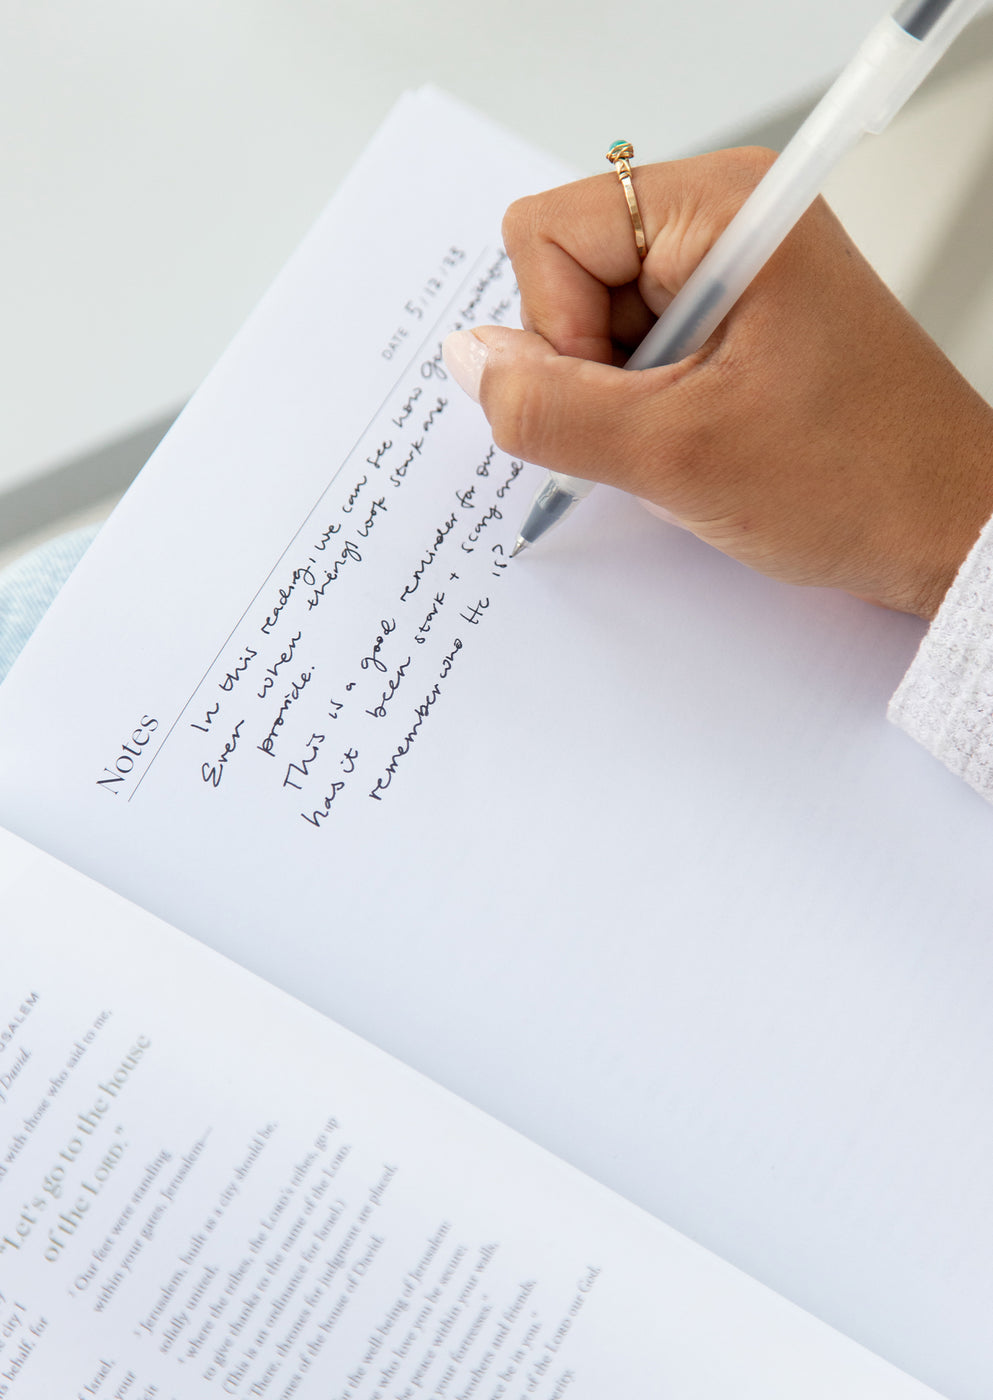 Notes
DATE 5/12/23
In this reading, we can see how
Even when things look stark and
provide.
This is a good reminder for our
has it been stark + scary and
remember who He is?
USALEM
David.
with those who said to me,
"Let's go to the house
of the LORD."
Our feet were standing
within your gates, Jerusalem—
Jerusalem, built as a city should be,
solidly united,
where the tribes, the LORD's tribes, go up
to give thanks to the name of the LORD.
(This is an ordinance for Israel.)
There, thrones for judgment are placed,
of the house of David.
the well-being of Jerusalem:
who love you be secure;
peace within your walls,
your fortresses."
brothers and friends,
be in you."
of the LORD our God,
behalf, for
Israel,
your